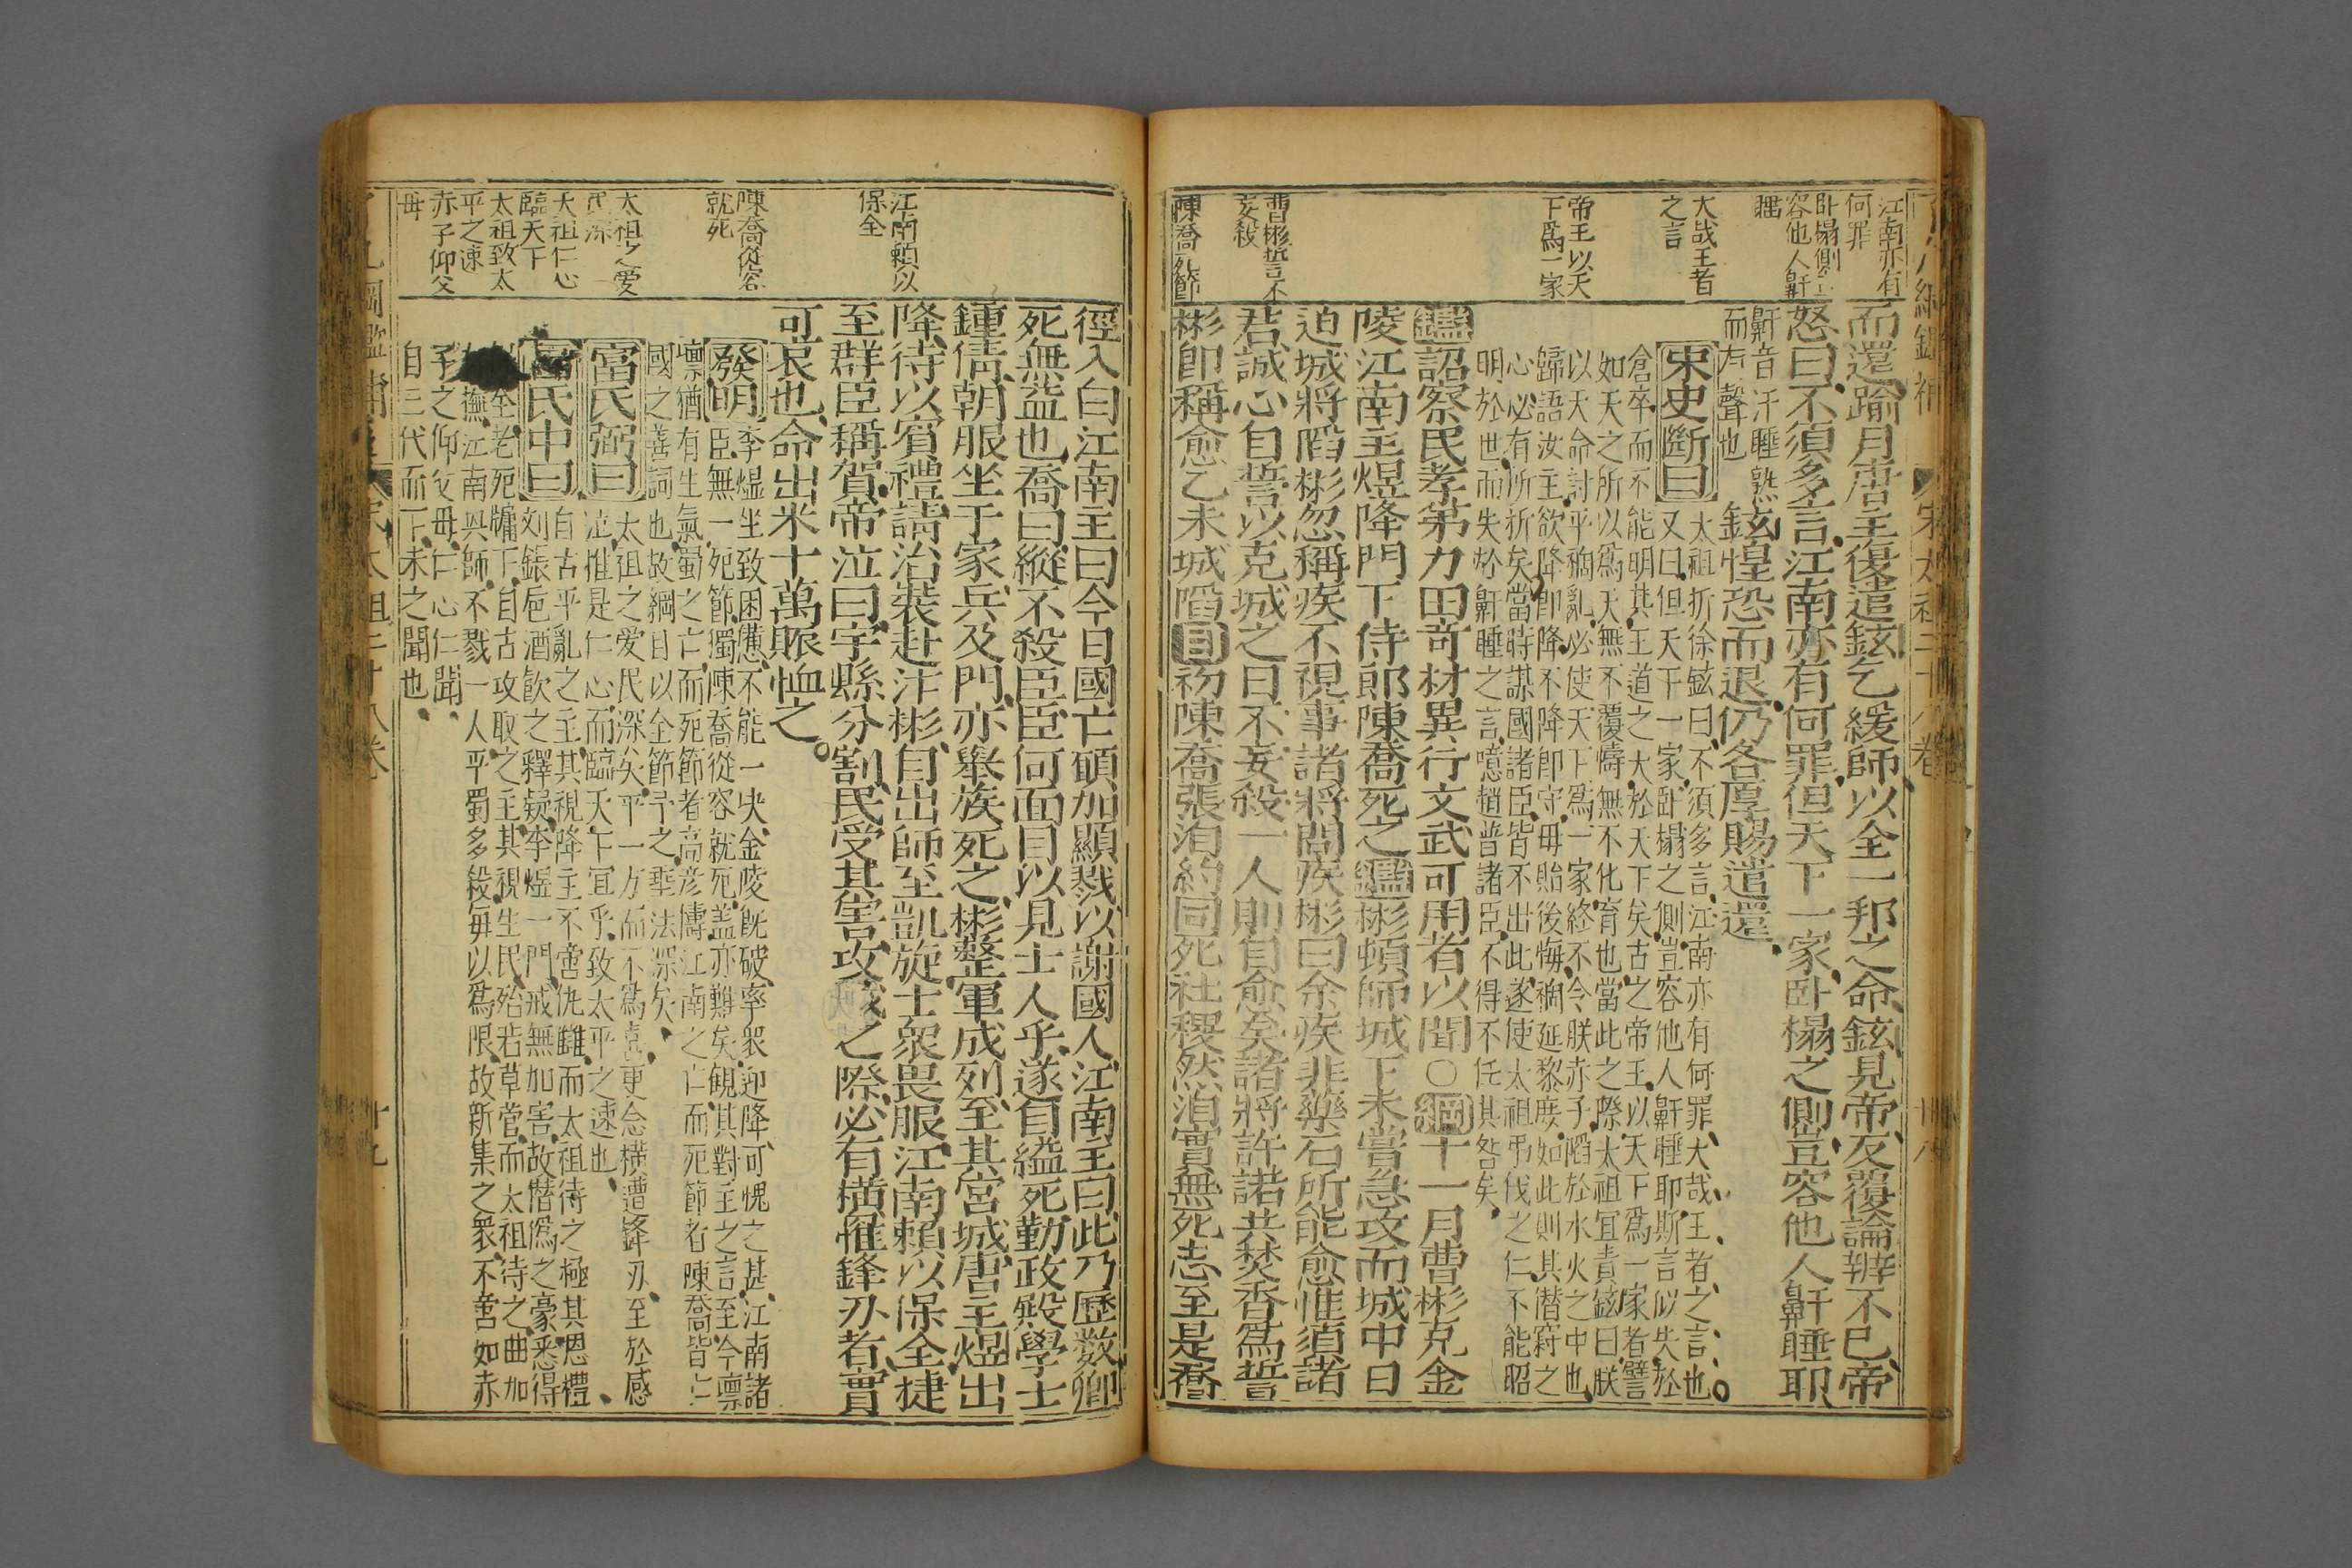 江南亦有
何罪
卧榻側豈
容他人鼾
睡
大哉王者
之言
帝王以天
下爲一家
曹彬誓不
妄殺
陳喬死節
而還踰月唐主復遣鉉乞緩師以全一邦之命鉉見帝反覆論辯不已帝
怒曰不須多言江南亦有何罪但天下一家卧榻之側豈容他人鼾睡耶
鼾音汗睡熟
而有聲也
鉉惶恐而退仍各厚賜遣還
宋史斷曰
太祖折徐鉉曰不須多言江南亦有何罪大哉王者之言也
又曰但天下一家卧榻之側豈容他人鼾睡耶斯言似失於
倉卒而不能明其王道之大於天下矣古之帝王以天下爲一家者譬
如天之所以爲天無不覆幬無不化育也當此之際太祖宜責鉉曰朕
以天命討平禍亂必使天下爲一家終不令朕赤子陷於水火之中也
歸語汝主欲降即降不降即守毋貽後悔禍延黎庶如此則其潛竊之
心必有所折矣當時謀國諸臣皆不出此遂使太祖弔伐之仁不能昭
明於世而失於鼾睡之言噫趙普諸臣不得不任其咎矣
鑑詔察民孝第力田竒材異行文武可用者以聞○綱十一月曹彬克金
陵江南主煜降門下侍郎陳喬死之鑑彬頓師城下未嘗急攻而城中日
迫城將陷彬忽稱疾不視事諸將問疾彬曰余疾非藥石所能愈惟須諸
君誠心自誓以克城之日不妄殺一人則自愈矣諸將許諾共焚香爲誓
彬即稱愈乙未城陷目初陳喬張洎約同死社稷然洎實無死志至是喬
江南頼以
保全
陳喬從容
就死
太祖之愛
民深
太祖仁心
臨天下
太祖致太
平之速
赤子仰父
毋
徑入白江南主曰今日國亡碩加顯戮以謝國人江南主曰此乃歷數卿
死無益也喬曰縱不殺臣臣何面目以見士人乎遂自縊死勤政殿學士
鍾倩朝服坐于家兵及門亦舉族死之彬整軍成列至其宮城唐主煜出
降待以賓禮請治裝赴汴彬自出師至凱旋士衆畏服江南頼以保全捷
至群臣稱賀帝泣曰宇縣分割民受其害攻城之際必有橫罹鋒刃者實
可哀也命出米十萬賑恤之
發明
李煜坐致困憊不能一决金陵既破率衆迎降可愧之甚江南諸
臣無一死節獨陳喬從容就死盖亦難矣觀其對主之言至今凛
凛猶有生氣蜀之亡而死節者高彦儔江南之亡而死節者陳喬皆亡
國之善詞也故綱目以全節予之垂法深矣
富氏弼曰
太祖之愛民深矣平一方而不爲喜更念橫遭鋒刃至於感
泣推是仁心而臨天下宜乎致太平之速也
富氏中曰
自古平亂之主其視降主不啻仇讎而太祖待之極其恩禮
刘鋹巵酒飮之釋疑李煜一門戒無加害故僭僞之豪悉得
全老死牖下自古攻取之主其視生民殆若草菅而太祖待之曲加
撫江南興師不戮一人平蜀多殺每以爲限故新集之衆不啻如赤
子之仰父毋仁心仁聞
自三代而下未之聞也